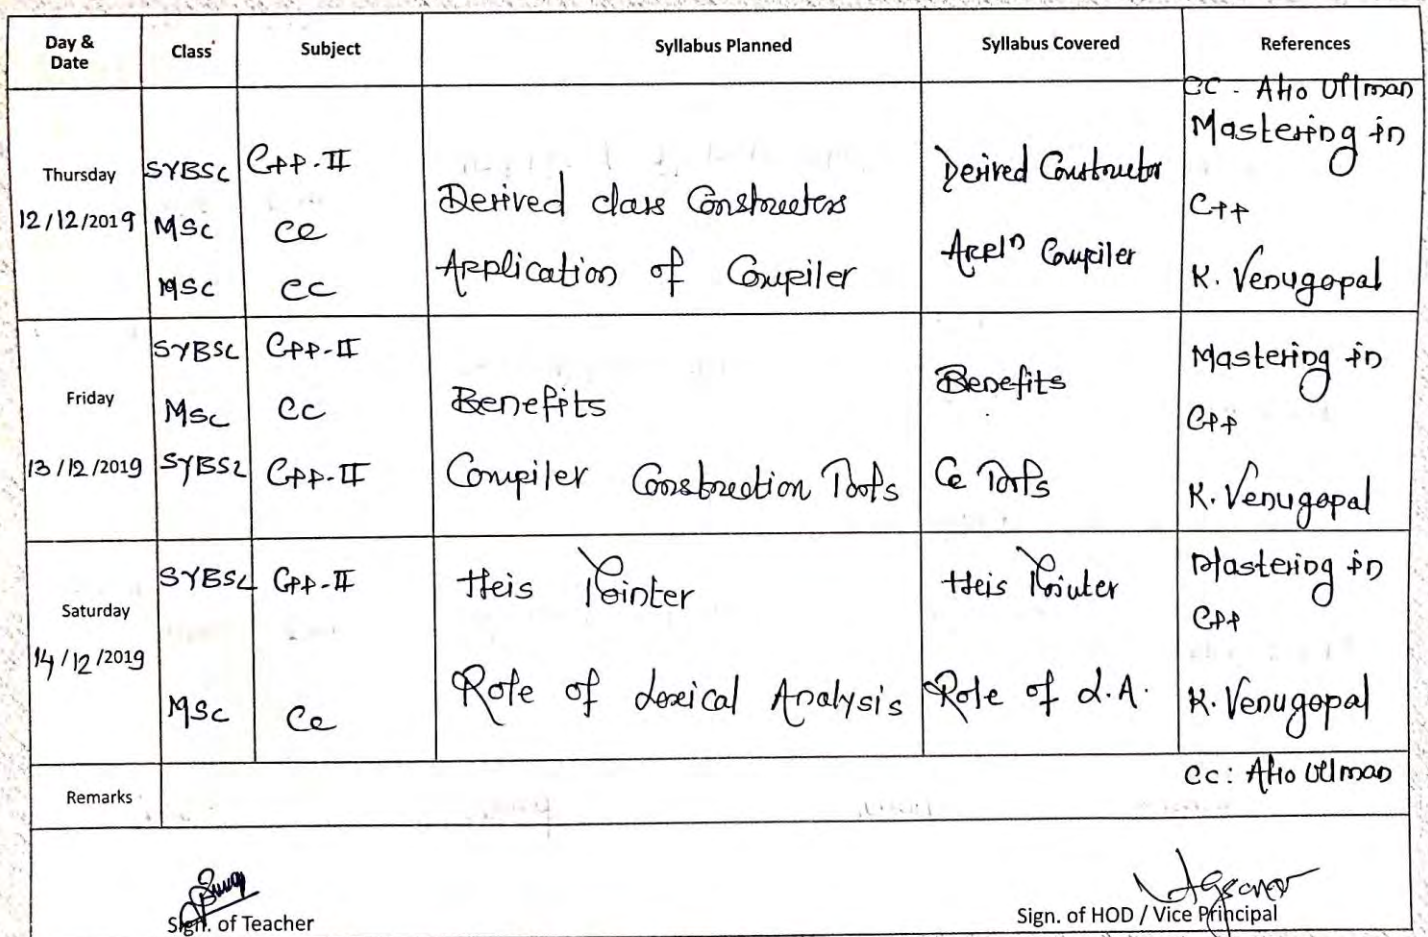 Day & Date Class Subject Syllabus Planned Syllabus Covered References
CC - Aho Ullman
Thursday
12/12/2019
SYBSC CPP-II
MSC CC
MSC CC
Derived class Constructors
Application of Compiler
Derived Constructor
Appln Compiler
Mastering in
CPP
K. Venugopal
Friday
13/12/2019
SYBSC CPP-II
MSC CC
SYBSC CPP-II
Benefits
Compiler Construction Tools
Benefits
CC Tools
Mastering in
CPP
K. Venugopal
Saturday
14/12/2019
SYBSC CPP-II
MSC CC
this Pointer
Role of Lexical Analysis
this Pointer
Role of L.A.
Mastering in
CPP
K. Venugopal
CC: Aho Ullman
Remarks
Sign. of Teacher
Sign. of HOD / Vice Principal